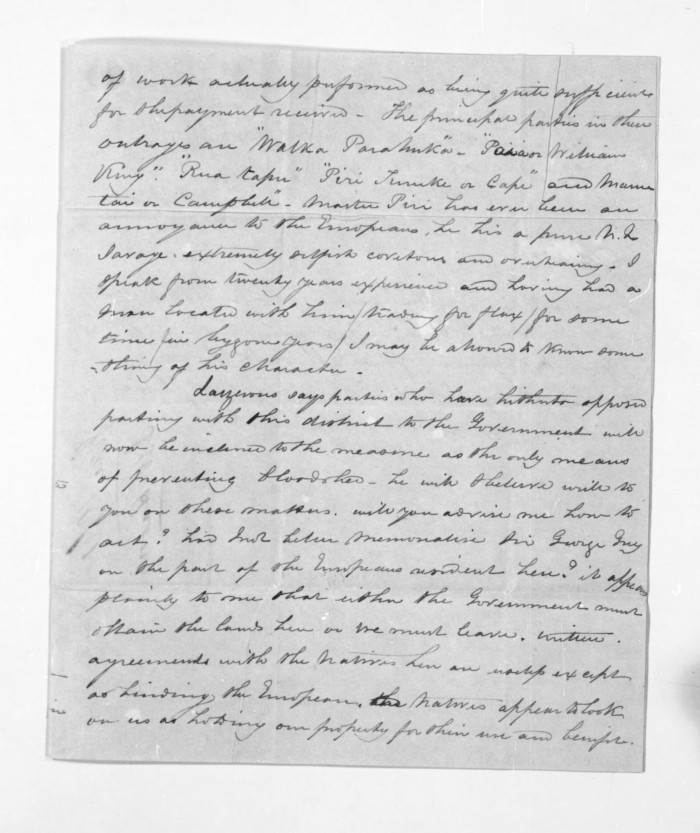 of work actually performed as being quite sufficient
for the payment received - The principal parties in these
outrages are "Walka Parahuka" - " or William
King". "Rua tapu" "Piri or Cape" and
tai or Campbell" - Master Piri has ever been an
annoyance to the Europeans, he his a pure N. Z
Savage. extremely selfish covetous and . I
speak from twenty years experience and having had a
man located with him / trading for flax / for some
time / in bygone years / I may be allowed to know some
-thing of his character.
Lazerous says parties who have hitherto opposed
parting with this district to the Government will
now be inclined to the measure as the only means
of preventing bloodshed - he will I believe write to
you on these matters. will you advise me how to
act? had I not better memorialise Sir George Grey
on the part of the Europeans resident here? it appears
plainly to me that either the Government must
obtain the lands here or we must leave. written.
agreements with the Natives here are useless except
as binding the European. the Natives appear to look
on us as holding our property for their use and benefit.